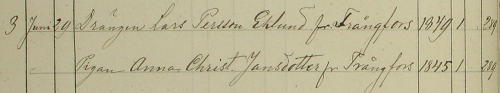 3 Juni 29 Drängen Lars Persson Eklund fr Trångfors 1849 1 284
" Pigan Anna Christ. Jansdotter fr Trångfors 1845 1 286